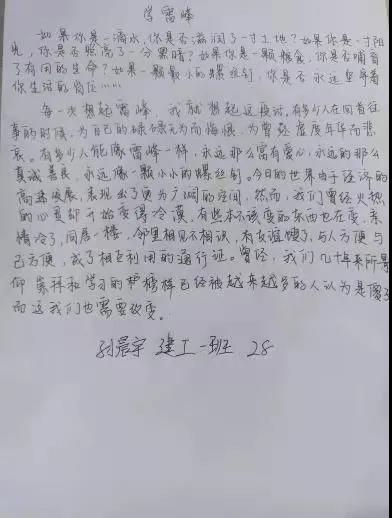 学雷峰
如果你是一滴水,你是否滋润了一寸土地?如果你是一寸阳
光,你是否照亮了一分黑暗?如果你是一颗粮食,你是否哺育
了有用的生命?如果一颗最小的螺丝钉,你是否永远坚守着
你生活的岗位……
每一次想起雷峰,我就想起这段诗,有多少人在回首往
事的时候,为自己的碌碌无为而悔恨,为曾经虚度年华而悲
哀。有多少人能像雷峰一样,永远那么富有爱心,永远的那么
真诚善良,永远像一颗小小的螺丝钉。今日的世界由于经济的
高速发展,表现出了更为广阔的空间,然而,我们曾经火热
的心复却开始变得冷漠,有些本不该变的东西也在变,亲
情冷了,同居一楼,邻里相见不相识,有友谊馊了,与人方便与
己方便,成了相互利用的通行证。曾经,我们几十年来所景
仰崇拜和学习的榜样已经被越来越多的人认为是傻了
而这我们也需要改变。
孙晨宇 建工一班 28